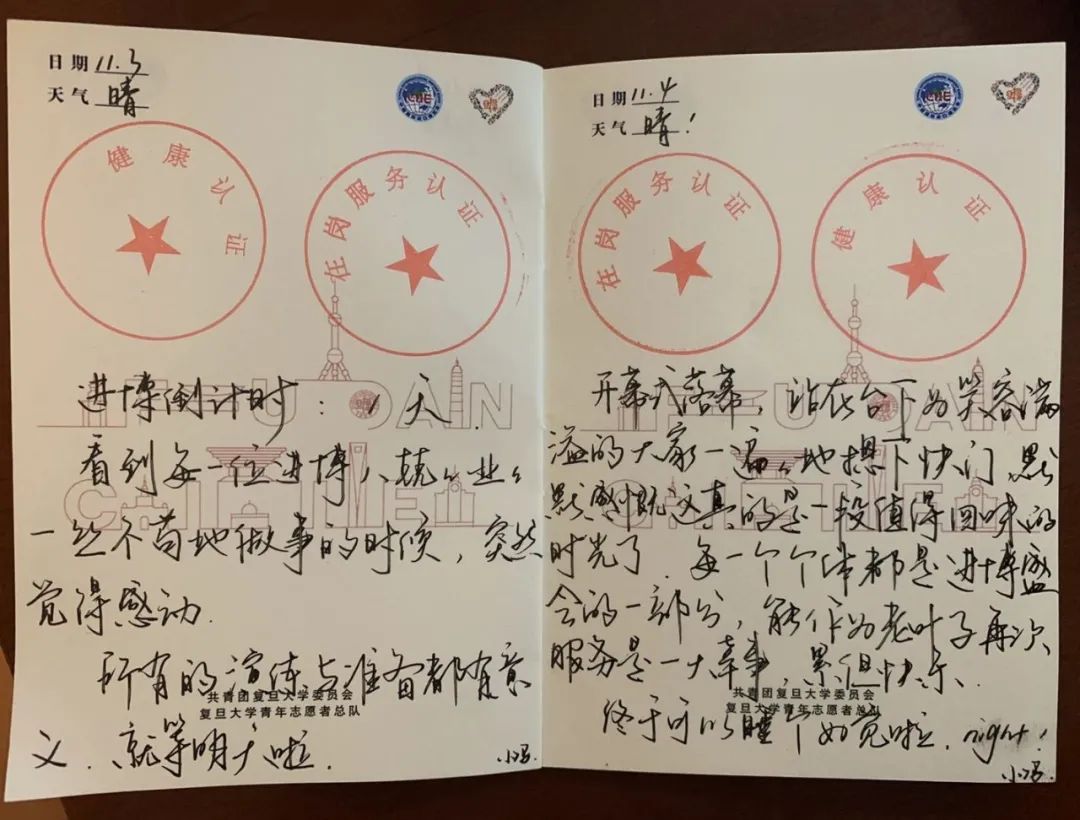 日期 11.3
天气 晴
CIIE
健康认证
在岗服务认证
FUDAN
CIIE
进博倒计时：1天.
看到每一位进博人兢々业々
一丝不苟地做事的时候，突然
觉得感动.
所有的演练与准备都有意
义. 就等明天啦.
共青团复旦大学委员会
复旦大学青年志愿者总队
小冯
日期 11.4
天气 晴！
CIIE
在岗服务认证
健康认证
FUDAN
CIIE
开幕式落幕，站在台下为笑容满
溢的大家一遍々地摁下快门 默
默感慨这真的是一段值得回味的
时光了. 每一个个体都是进博盛
会的一部分，能作为老叶子再次
服务是一大幸事，累但快乐.
终于可以睡个好觉啦. night！
共青团复旦大学委员会
复旦大学青年志愿者总队
小冯